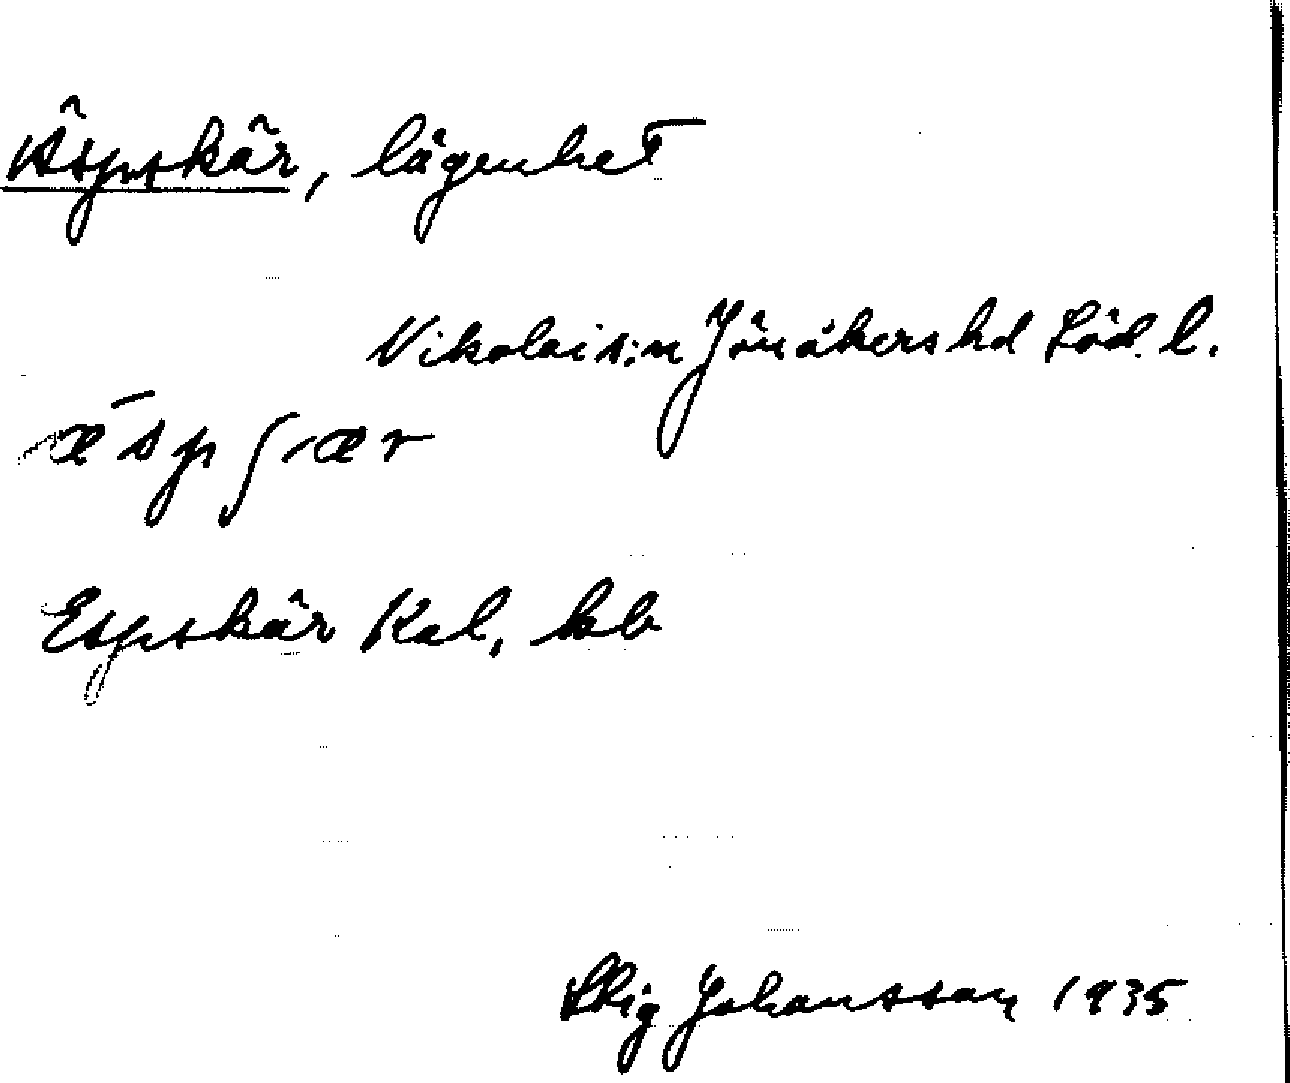 Äspskär, lägenhet
Nikolai s:n Jönåkers hd Söd. l.
Espskär Kal. lbb
Stig Johansson 1935